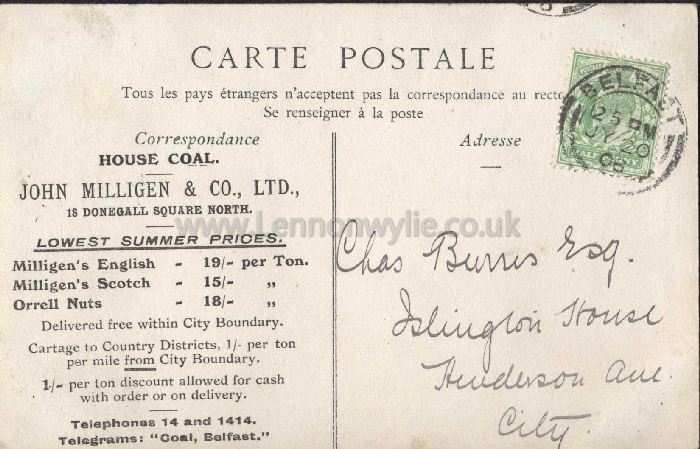 CARTE POSTALE
Tous les pays étrangers n'acceptent pas la correspondance au recto
Se renseigner à la poste
BELFAST
JY 20
Correspondance
HOUSE COAL.
JOHN MILLIGEN & CO., LTD.,
18 DONEGALL SQUARE NORTH.
LOWEST SUMMER PRICES.
Milligen's English - 19/- per Ton.
Milligen's Scotch - 15/- „
Orrell Nuts - 18/- „
Delivered free within City Boundary.
Cartage to Country Districts, 1/- per ton
per mile from City Boundary.
1/- per ton discount allowed for cash
with order or on delivery.
Telephones 14 and 1414.
Telegrams: "Coal, Belfast."
Adresse
Chas Burris Esq.
Islington House
Henderson Ave.
City.
www.Lennonwylie.co.uk